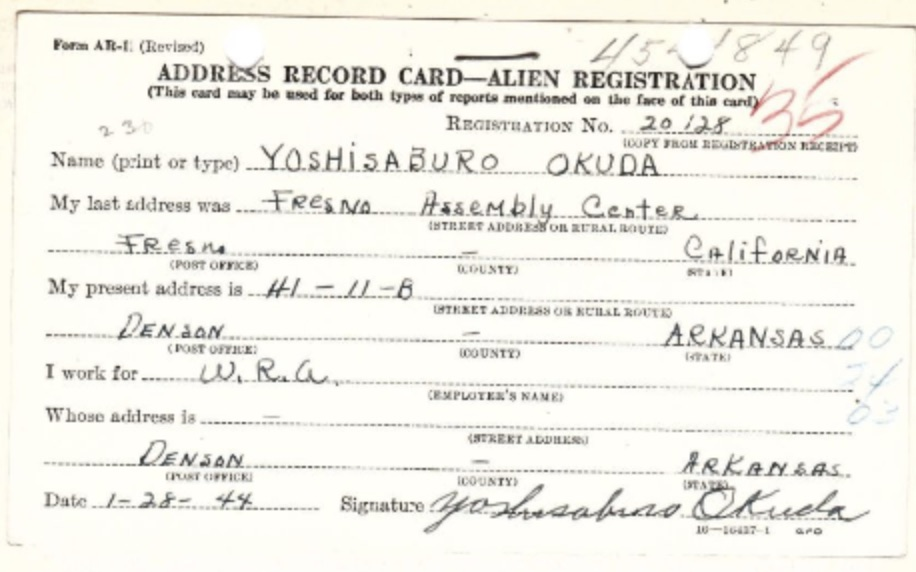 Form AR-11 (Revised)
45-1849
ADDRESS RECORD CARD—ALIEN REGISTRATION
(This card may be used for both types of reports mentioned on the face of this card)
35
230
REGISTRATION No. 20128
(COPY FROM REGISTRATION RECEIPT)
Name (print or type) YOSHISABURO OKUDA
My last address was FRESNO Assembly Center
(STREET ADDRESS OR RURAL ROUTE)
Fresno - CALIFORNIA
(POST OFFICE) (COUNTY) (STATE)
My present address is 41-11-B
(STREET ADDRESS OR RURAL ROUTE)
DENSON - ARKANSAS 00
(POST OFFICE) (COUNTY) (STATE)
24
I work for W.R.A.
(EMPLOYER'S NAME)
03
Whose address is -
(STREET ADDRESS)
DENSON - ARKANSAS.
(POST OFFICE) (COUNTY) (STATE)
Date 1-28-44 Signature Yoshisaburo Okuda
16—16437-1 GPO